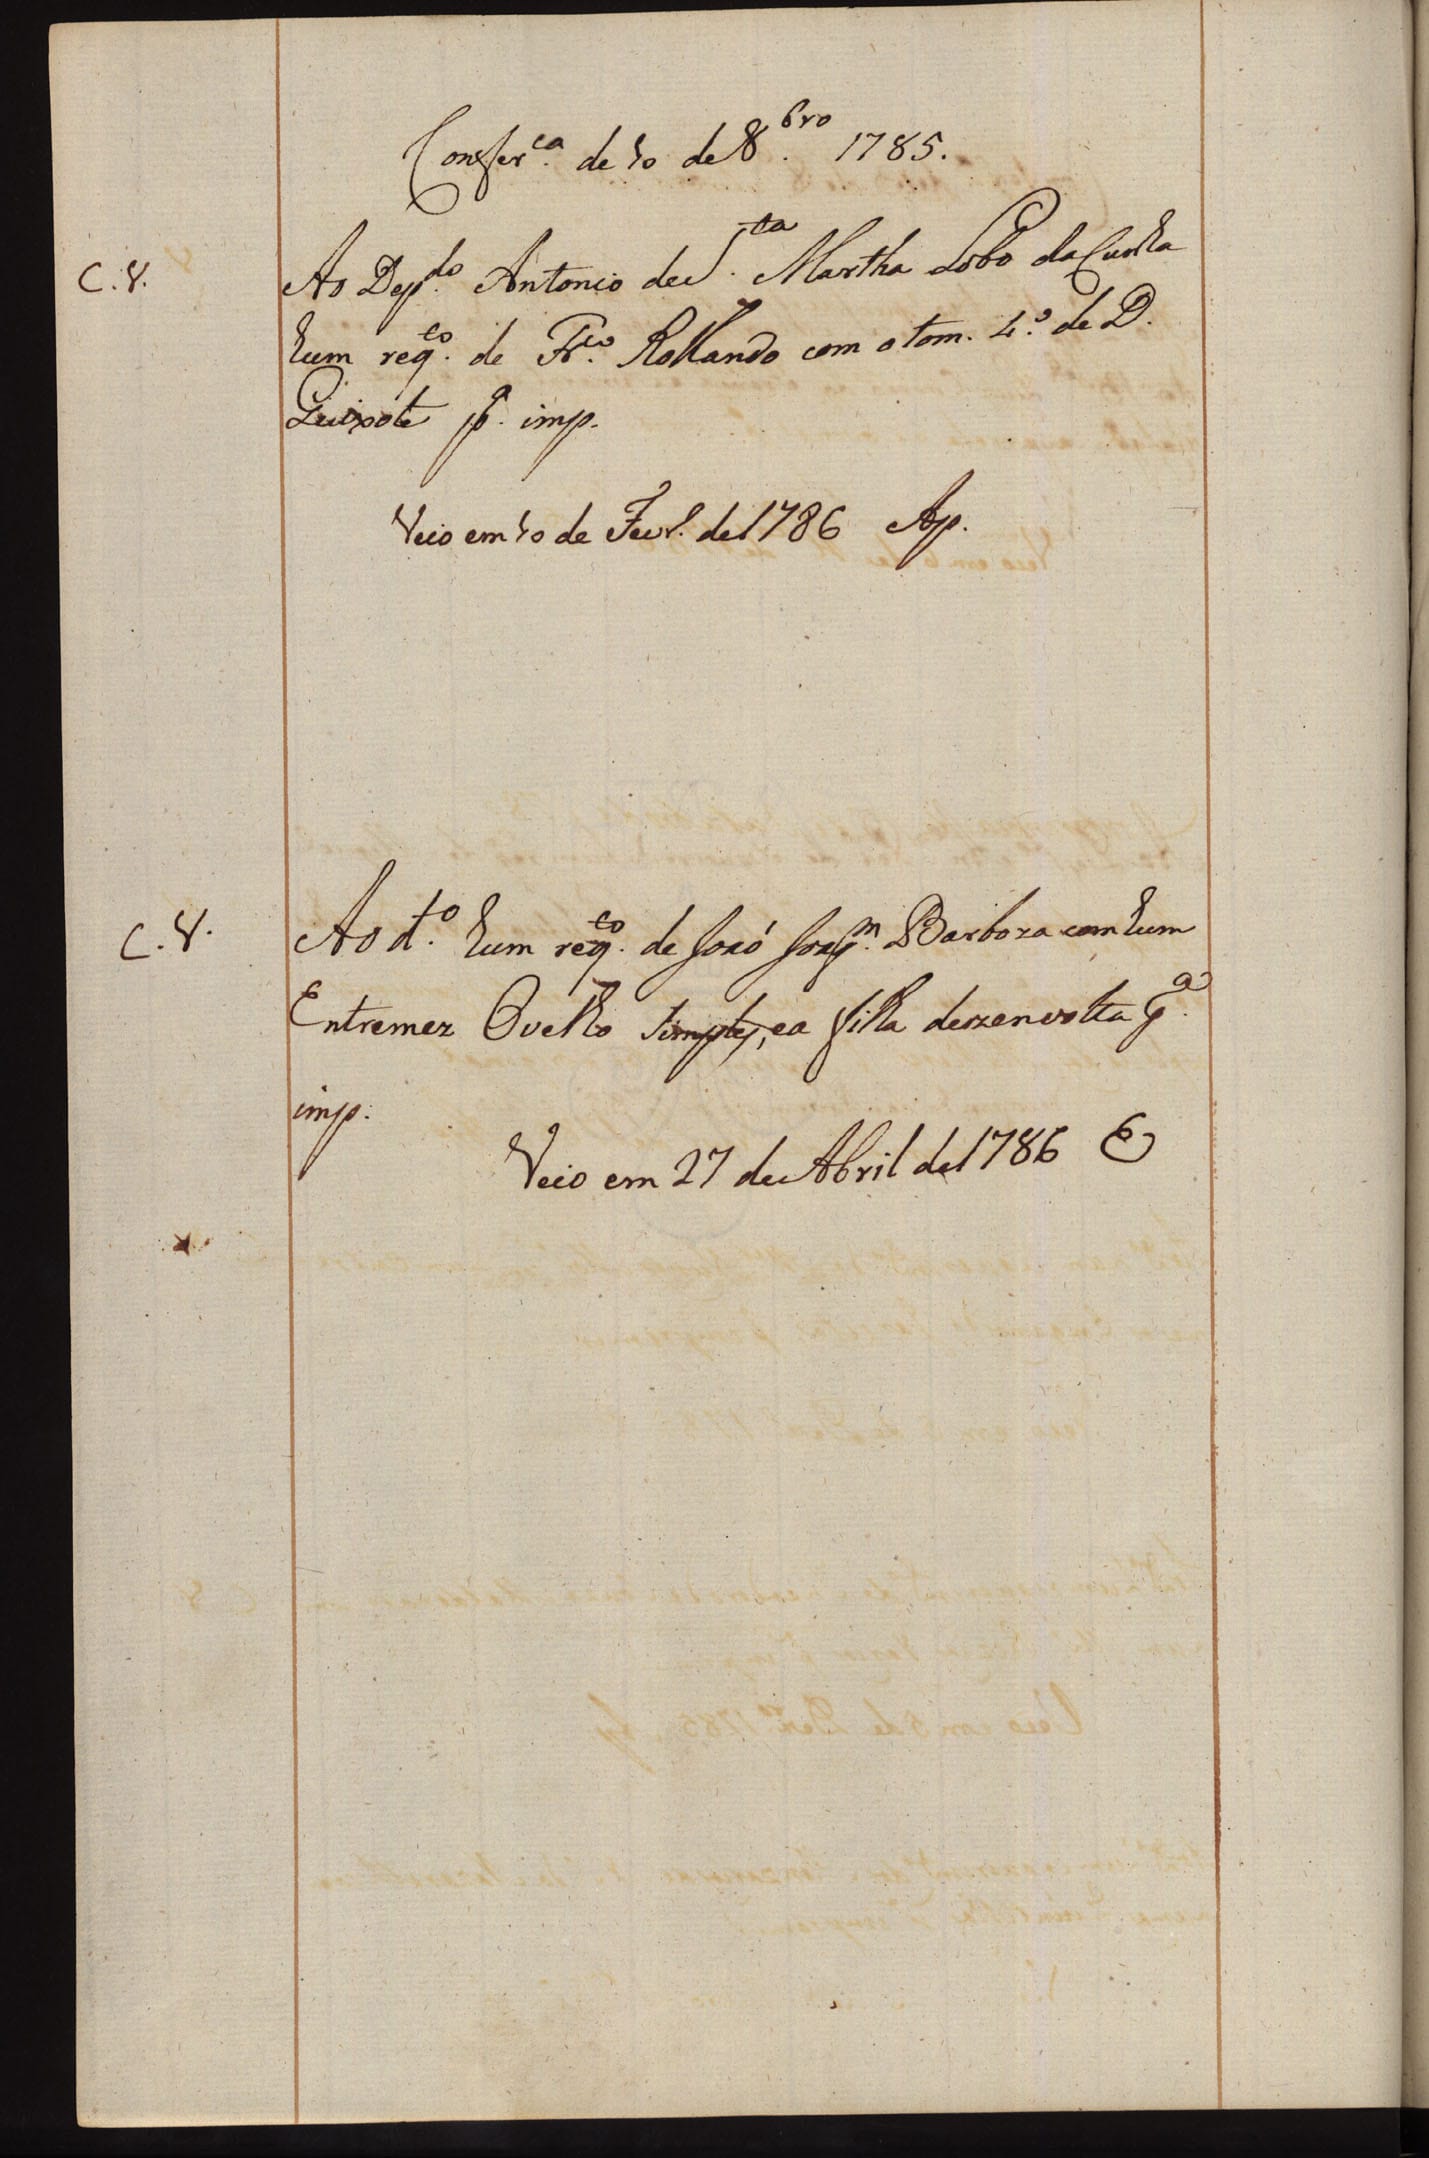 Confer.ca de 10 de 8.bro 1785.
C. V.
Ao Dep.do Antonio de S.ta Martha Lobo da Cunha
hum req.to de Fr.co Rollando com o tom. 4.º de D.
Quixote p.a imp.
Veio em 10 de Fevr. de 1786 Ap.
C. V.
Ao d.º hum req.to de José Joaq.m Barboza com hum
Entremez O velho simples, e a filha dezenvolta p.a
imp.
Veio em 27 de Abril de 1786 E